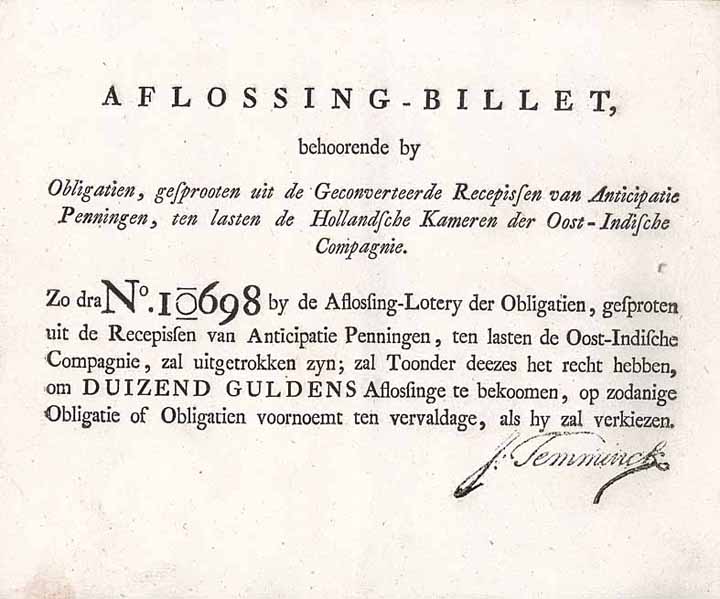 AFLOSSING-BILLET,
behoorende by
Obligatien, geſprooten uit de Geconverteerde Recepiſſen van Anticipatie
Penningen, ten lasten de Hollandſche Kameren der Oost-Indiſche
Compagnie.
Zo dra No. 10698 by de Aflosſing-Lotery der Obligatien, geſproten
uit de Recepisſen van Anticipatie Penningen, ten lasten de Oost-Indiſche
Compagnie, zal uitgetrokken zyn; zal Toonder deezes het recht hebben,
om DUIZEND GULDENS Aflosſinge te bekoomen, op zodanige
Obligatie of Obligatien voornoemt ten vervaldage, als hy zal verkiezen.
J: Temminck